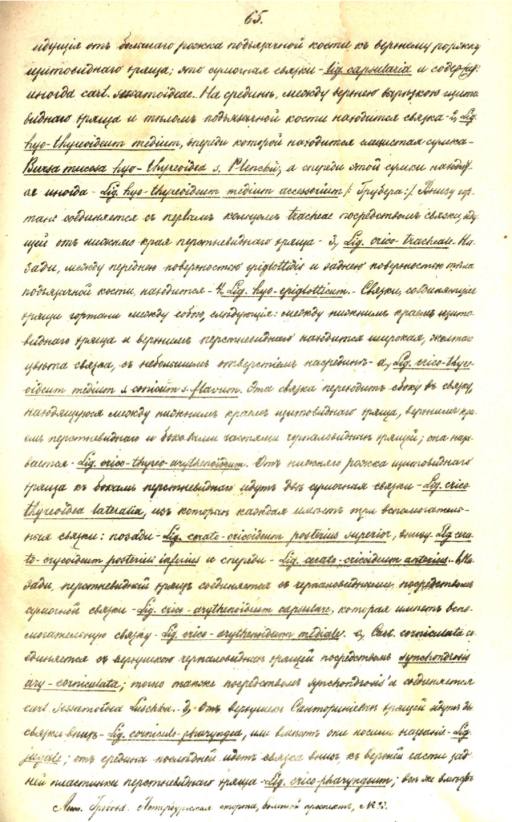 65.
идущія отъ большаго рожка подъязычной кости къ верхнему рожку
щитовиднаго хряща; это сумочная связки - lig. capsularia и содерж.
иногда cart. sesamoideae. На срединѣ, между верхнею вырѣзкою щито
виднаго хряща и тѣломъ подъязычной кости находится связка - 2, Lig.
hyo-thyreoideum medium, впереди которой находится слизистая сумка -
Bursa mucosa hyo-thyreoidea s. Plenckii, а спереди этой сумки находит
ся иногда - Lig. hyo-thyreoideum medium accessorium /: Грубера :/ Внизу гор
тань соединяется съ первымъ кольцомъ tracheae посредствомъ связки, иду
щей отъ нижняго края перстневиднаго хряща - 3, Lig. crico-tracheale. На
зади, между переднею поверхностью epiglottidis и заднею поверхностью тѣла
подъязычной кости, находится - 4, Lig. hyo-epiglotticum. - Связки, соединяющія
хрящи гортани между собою, слѣдующія: между нижнимъ краемъ щито
виднаго хряща и верхнимъ перстневиднаго находится широкая, желтаго
цвѣта связка, съ небольшимъ отверстіемъ посрединѣ - a, Lig. crico-thyre-
oideum medium s. conicum s. flavum. Эта связка переходитъ сбоку въ связку,
находящуюся между нижнимъ краемъ щитовиднаго хряща, верхнимъ кра
емъ перстневиднаго и боковыми частями черпаловидныхъ хрящей; она назы
вается - Lig. crico-thyreo-arythenoideum. Отъ нижняго рожка щитовиднаго
хряща къ бокамъ перстневиднаго идутъ двѣ сумочныя связки - Lig. crico
thyreoidea lateralia, изъ которыхъ каждая имѣетъ три вспомогатель-
ныя связки: позади - Lig. cerato-cricoideum posterius superior, внизу Lig. cera
to-crycoideum posterius inferius и спереди - Lig. cerato-cricoideum anterius. - b, На
зади, перстневидный хрящъ соединяется съ черпаловидными посредствомъ
сумочной связки - Lig. crico-arythenoideum capsulare, которая имѣетъ вспо
могательную связку - Lig. crico-arythenoideum mediale. c, Cart. corniculata со
единяется съ верхушкою черпаловидныхъ хрящей посредствомъ synchondrosis
ary-corniculata; точно также посредствомъ synchondrosis'а соединяется
cart. sesamoidea Luschka. d, Отъ верхушекъ Санториніевыхъ хрящей идутъ двѣ
связки внизъ - Lig. corniculo-pharyngea, или вмѣстѣ они носятъ названіе - Lig.
jugale; отъ средины послѣдней идетъ связка внизъ къ верхней части зад
ней пластинки перстневиднаго хряща - Lig. crico-pharyngeum; всѣ же
Петербургская сторона, большой проспектъ, №